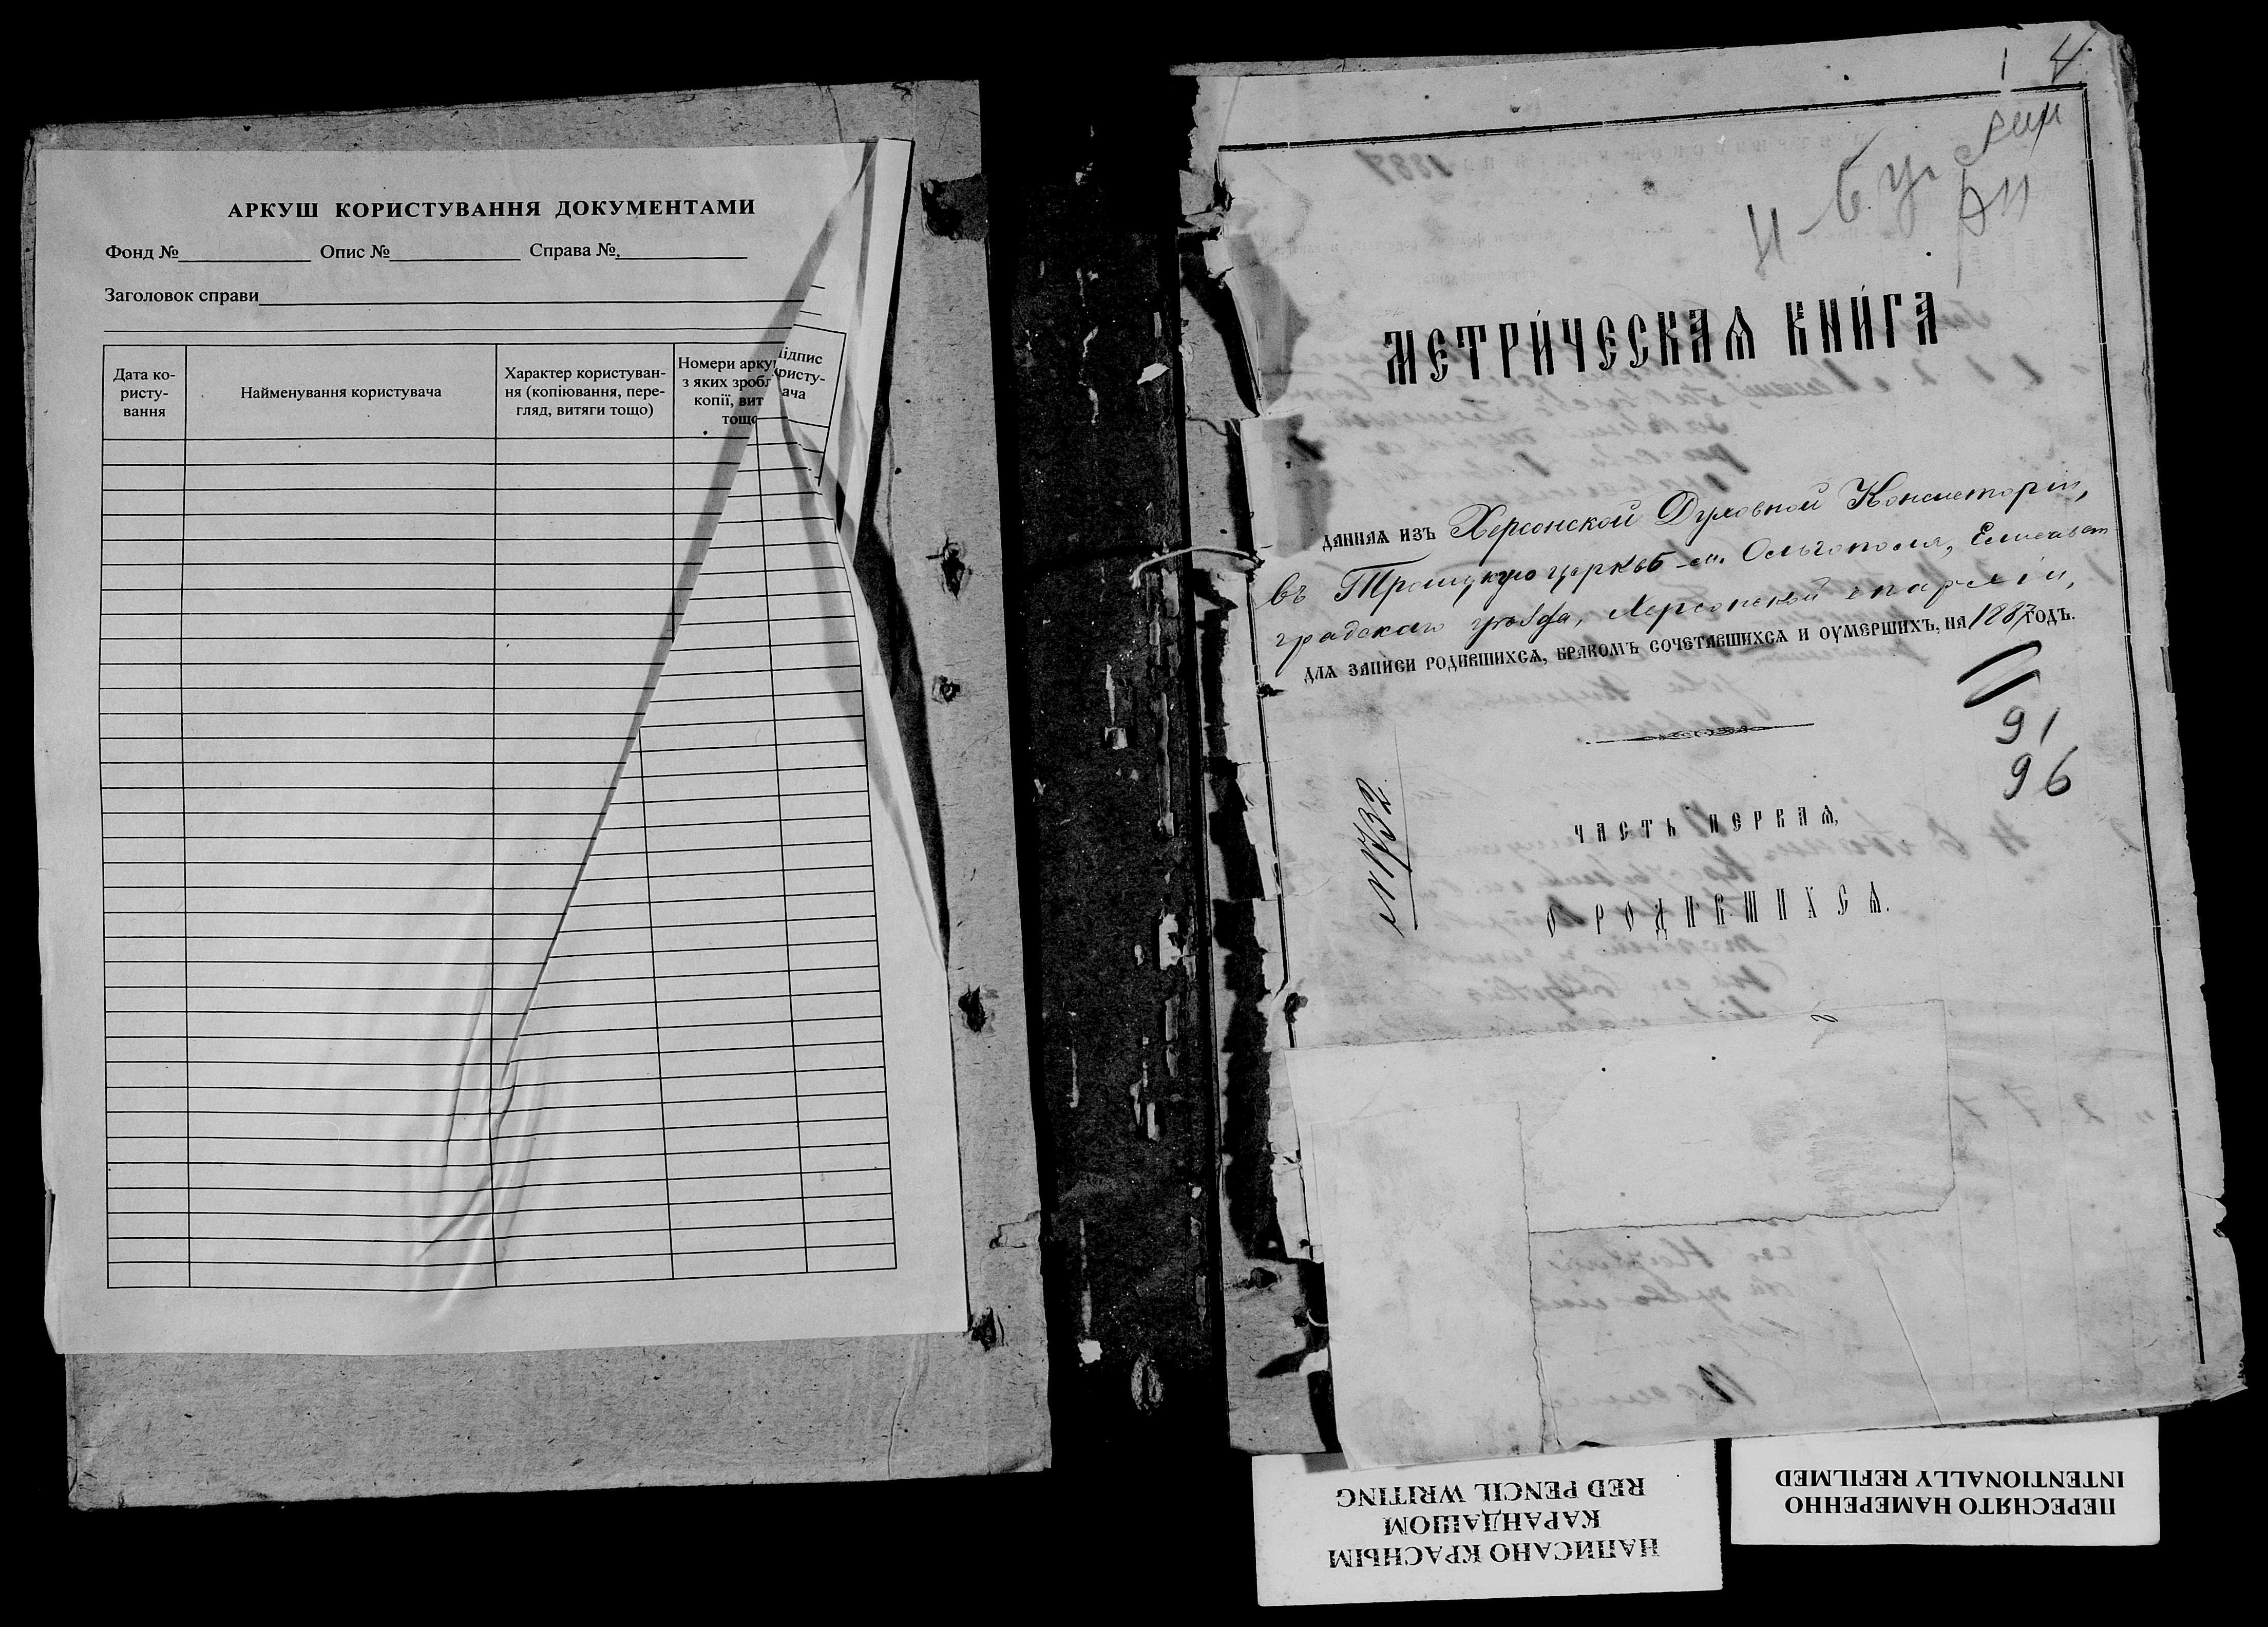 АРКУШ КОРИСТУВАННЯ ДОКУМЕНТАМИ
Фонд № Опис № Справа №
Заголовок справи
Дата ко-
ристу-
вання
Найменування користувача
Характер користуван-
ня (копіювання, пере-
гляд, витяги тощо)
Номери арку
з яких зробл
копії, вит
тощо
підпис
ристу-
ача
1 4
МЕТРИ́ЧЕСКАѦ КНИ́ГА
ДАННАѦ ИЗЪ Херсонской Духовной Консисторіи,
въ Троицкую церковь м. Ольгополя, Елисавет
градскаго уѣзда, Херсонской епархіи,
ДЛѦ ЗАПИСИ РОДИВШИХСѦ, БРАКОМЪ СОЧЕТАВШИХСѦ И ОУМЕРШИХЪ, НА 1887 ГОДЪ.
91
96
№ 1732
ЧАСТЬ ПЕРВАѦ,
О РОДИВШИХСѦ.
НАПИСАНО КРАСНЫМ
КАРАНДАШОМ
RED PENCIL WRITING
ПЕРЕСНЯТО НАМЕРЕННО
INTENTIONALLY REFILMED